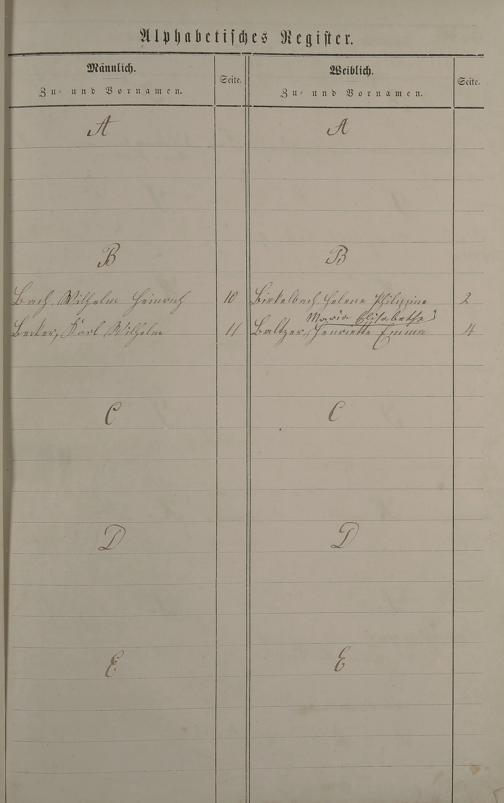 Alphabetisches Register.
Männlich.
Zu- und Vornamen.
Seite.
Weiblich.
Zu- und Vornamen.
Seite.
A
A
B
B
Bach, Wilhelm Heinrich 10
Birkelbach, Helene Philippine 2
Maria Elisabetha
Becker, Karl Wilhelm 11
Baltzer, Henriette Emma 4
C
C
D
D
E
E